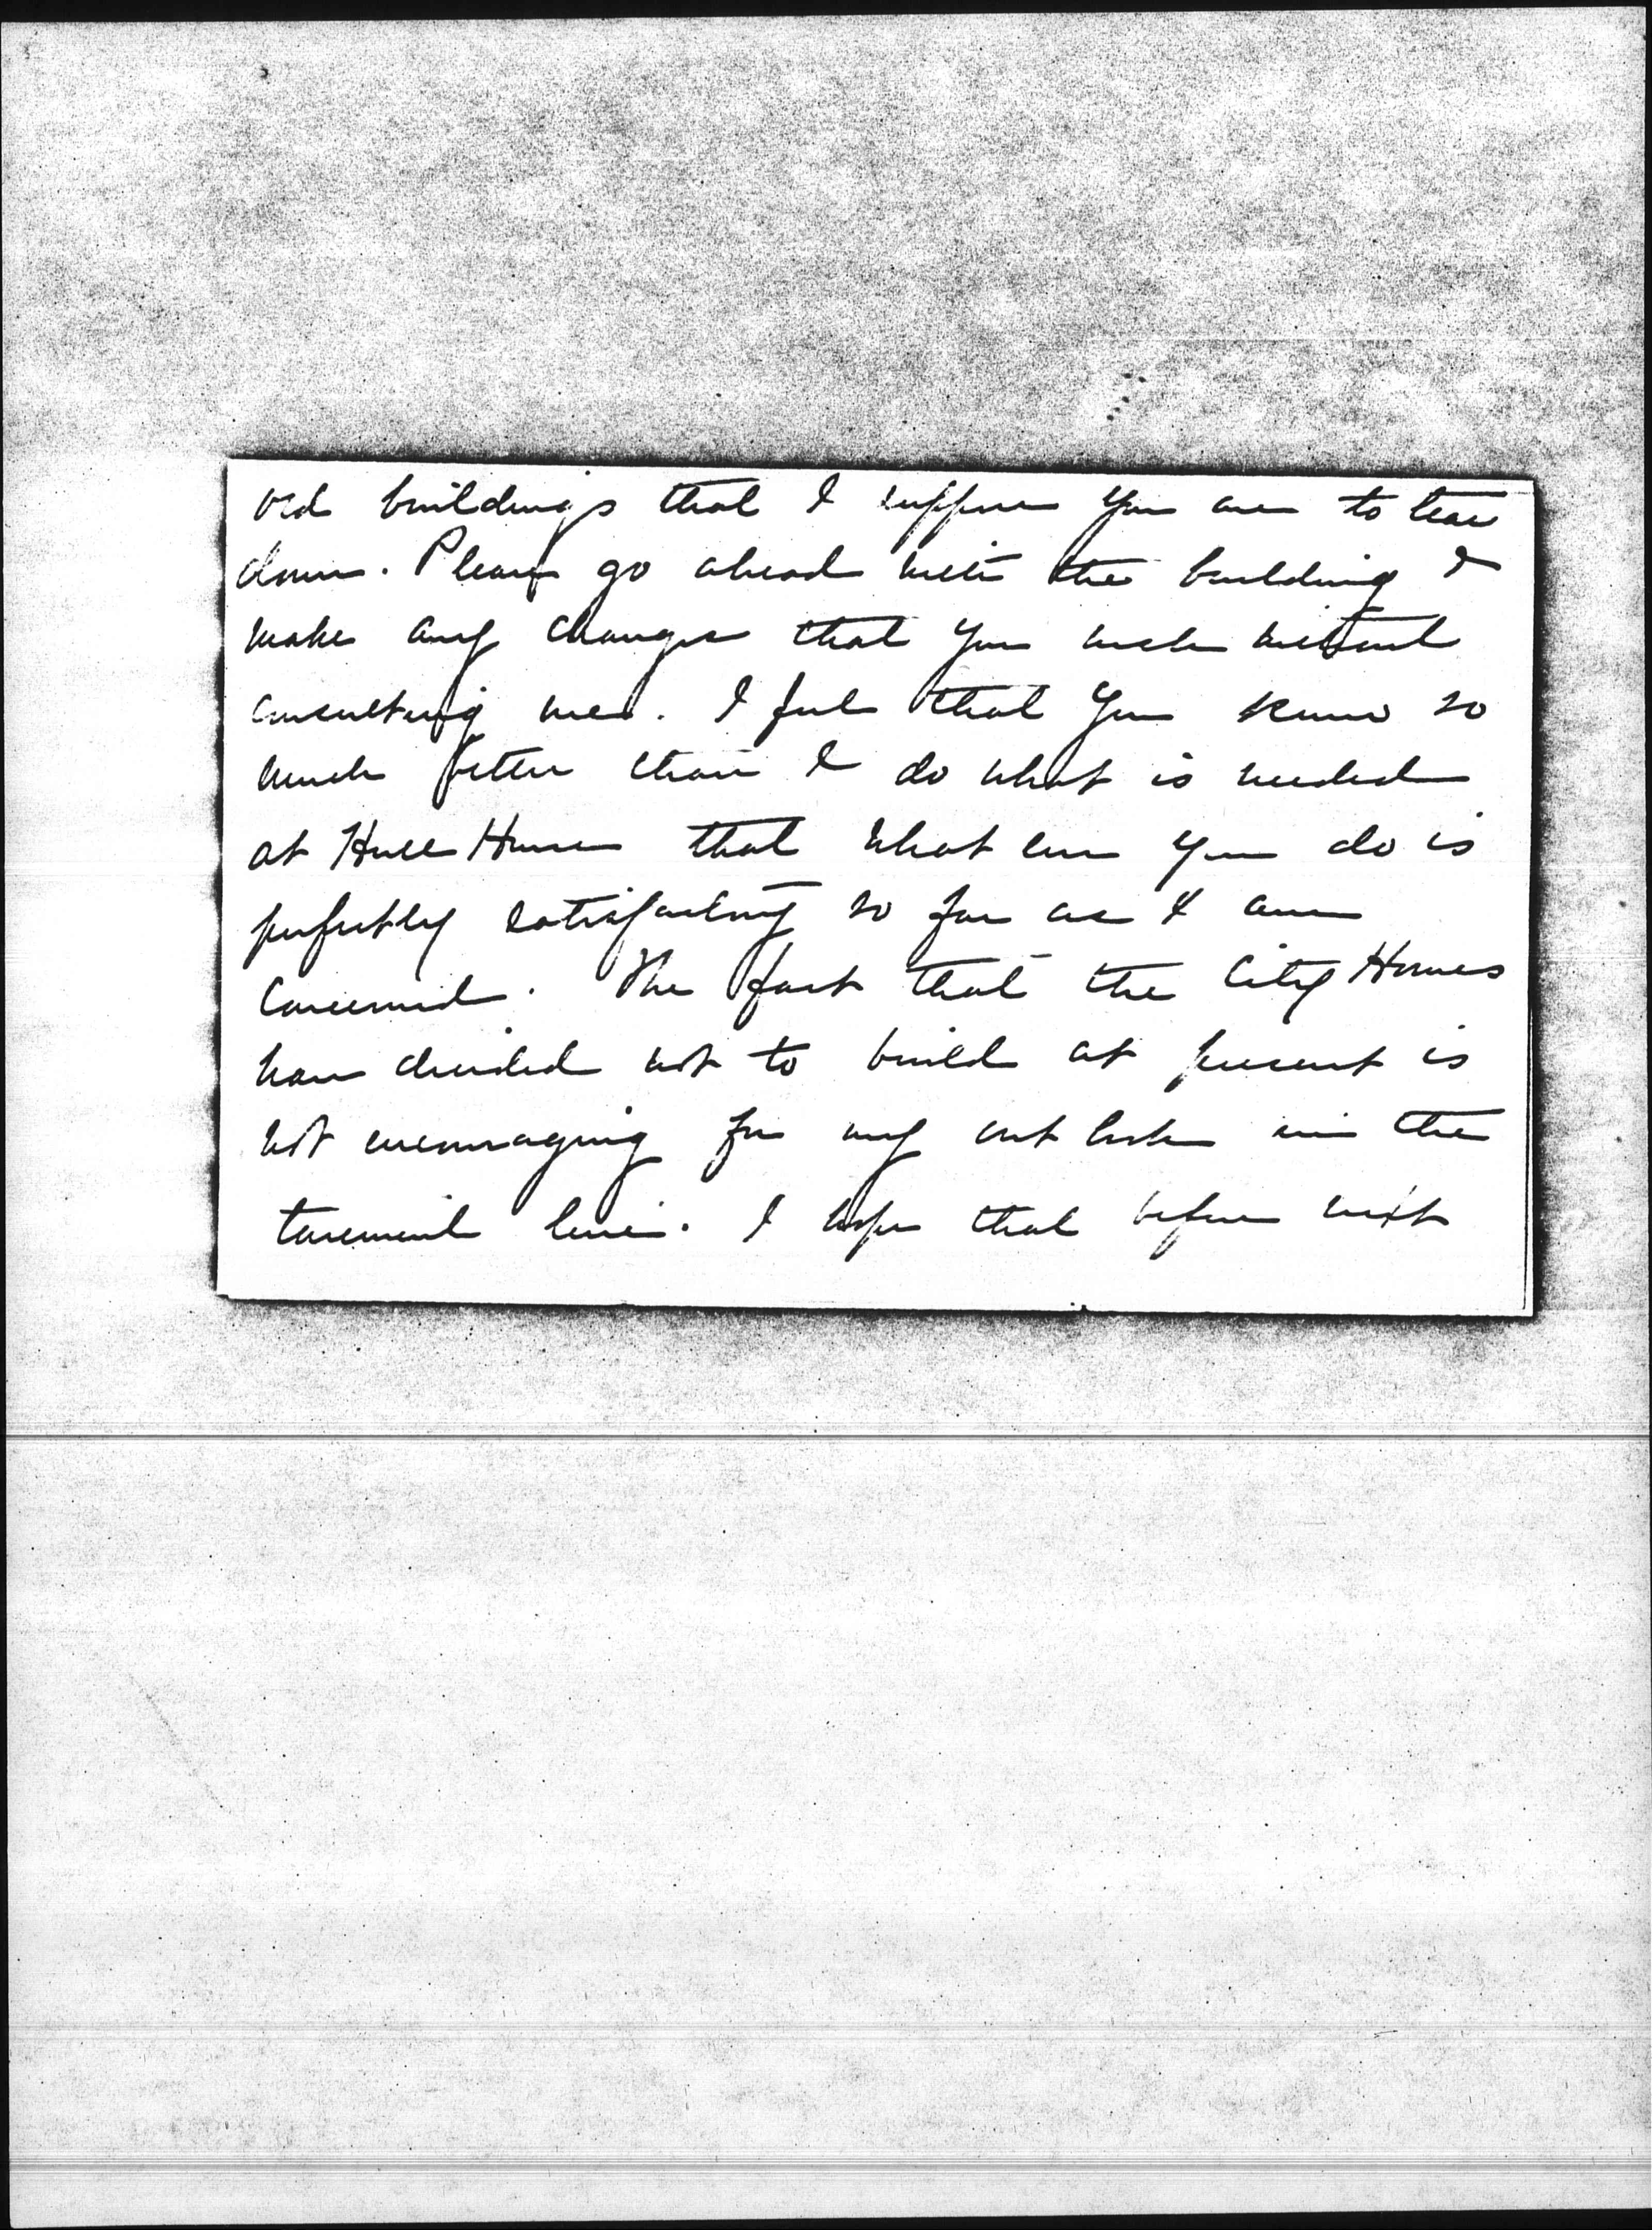 old buildings that I suppose you are to tear
down. Please go ahead with the building &
make any changes that you wish without
consulting me. I feel that you know so
much better than I do what is needed
at Hull House that what ever you do is
perfectly satisfactory so far as I am
concerned. The fact that the City Homes
have decided not to build at present is
not encouraging for my out look in the
tenement line. I hope that before next